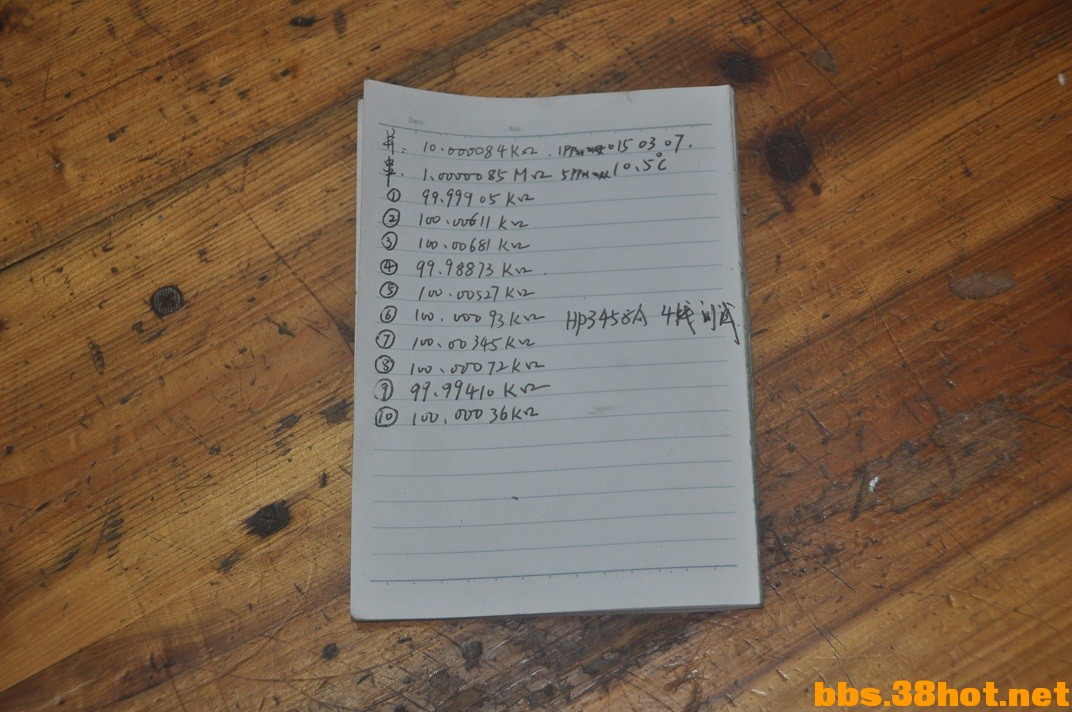 Date No.
并: 10.000084KΩ. 1PPM 015 03 07.
串: 1.0000085MΩ 5PPM 10.5℃
① 99.99905KΩ
② 100.00611KΩ
③ 100.00681KΩ
④ 99.98873KΩ.
⑤ 100.00527KΩ
⑥ 100.00093KΩ HP3458A 4线测试
⑦ 100.00345KΩ
⑧ 100.00072KΩ
⑨ 99.99410KΩ
⑩ 100.00036KΩ
bbs.38hot.net